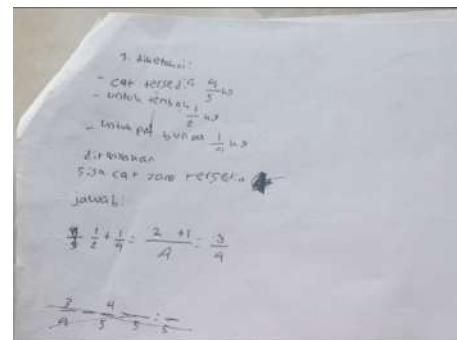 1. diketahui:
- cat tersedia 4/5 kg
- untuk tembok 1/2 kg
- untuk pot bunga 1/4 kg
ditanyakan
sisa cat yang tersedia
jawab:
1/2 + 1/4 = 2 + 1 / 4 = 3/4
3/4 - 4/5